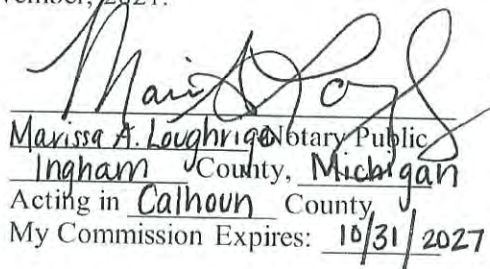 vember, 2021.
Marissa A. Loughrige Notary Public
Ingham County, Michigan
Acting in Calhoun County
My Commission Expires: 10/31/2027